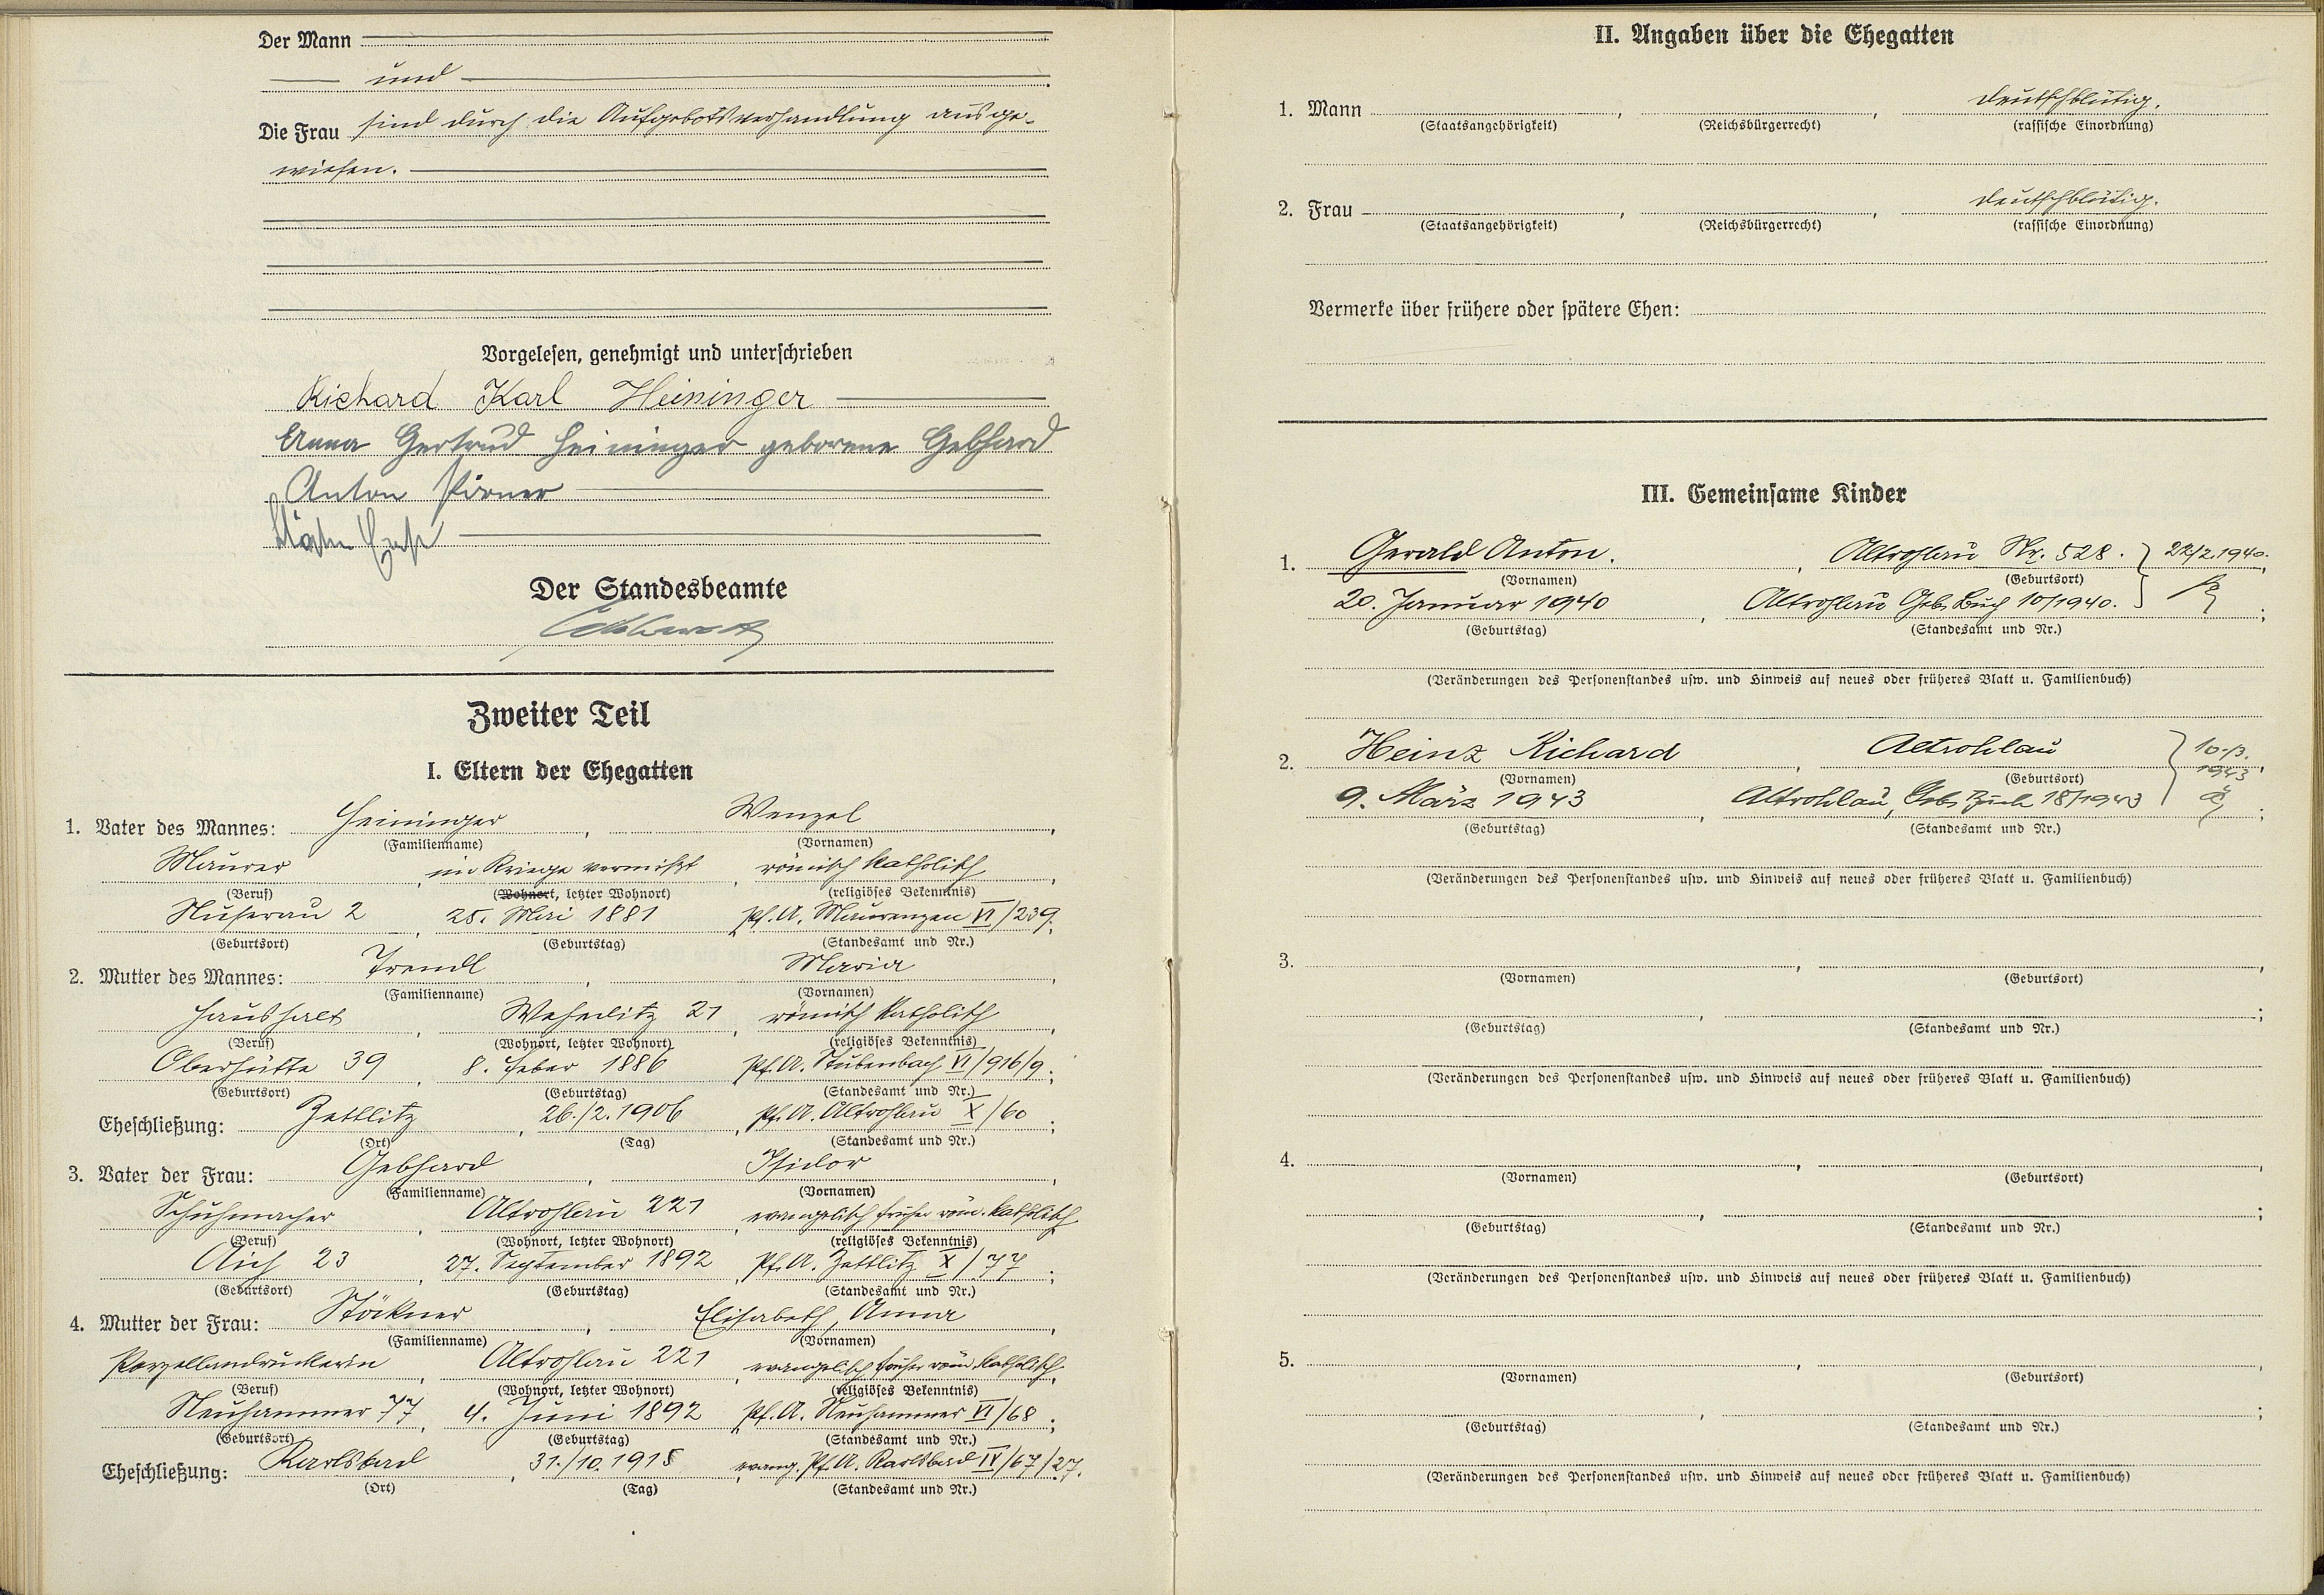 Der Mann
und
Die Frau sind durch die Aufgebotsverhandlung ausge-
wiesen.
Vorgelesen, genehmigt und unterschrieben
Richard Karl Heininger
Anna Gertrud Heininger geborene Gebhard
Anton Pirner
Der Standesbeamte
Zweiter Teil
I. Eltern der Ehegatten
1. Vater des Mannes: Heininger, Wenzel,
(Familienname) (Vornamen)
Maurer, im Kriege vermißt, römisch katholisch,
(Beruf) (Wohnort, letzter Wohnort) (religiöses Bekenntnis)
Nuserau 2, 25. Mai 1881, Pf. A. Maurenzen VI/239;
(Geburtsort) (Geburtstag) (Standesamt und Nr.)
2. Mutter des Mannes: Trendl, Maria,
(Familienname) (Vornamen)
Haushalt, Weheditz 21, römisch katholisch,
(Beruf) (Wohnort, letzter Wohnort) (religiöses Bekenntnis)
Oberhütte 39, 8. Feber 1886, Pf. A. Stubenbach VI/916/9;
(Geburtsort) (Geburtstag) (Standesamt und Nr.)
Eheschließung: Zettlitz, 26./2.1906, Pf. A. Altrohlau X/60;
(Ort) (Tag) (Standesamt und Nr.)
3. Vater der Frau: Gebhard, Isidor,
(Familienname) (Vornamen)
Schuhmacher, Altrohlau 221, evangelisch früher röm. katholisch,
(Beruf) (Wohnort, letzter Wohnort) (religiöses Bekenntnis)
Aich 23, 27. September 1892, Pf. A. Zettlitz X/77;
(Geburtsort) (Geburtstag) (Standesamt und Nr.)
4. Mutter der Frau: Stöckner, Elisabeth, Anna,
(Familienname) (Vornamen)
Porzellandruckerin, Altrohlau 221, evangelisch früher röm. katholisch,
(Beruf) (Wohnort, letzter Wohnort) (religiöses Bekenntnis)
Neuhammer 77, 4. Juni 1892, Pf. A. Neuhammer VI/68;
(Geburtsort) (Geburtstag) (Standesamt und Nr.)
Eheschließung: Karlsbad, 31./10.1915, evang. Pf. A. Karlsbad IV/67/27.
(Ort) (Tag) (Standesamt und Nr.)
II. Angaben über die Ehegatten
1. Mann , , deutschblütig.
(Staatsangehörigkeit) (Reichsbürgerrecht) (rassische Einordnung)
2. Frau , , deutschblütig.
(Staatsangehörigkeit) (Reichsbürgerrecht) (rassische Einordnung)
Vermerke über frühere oder spätere Ehen:
III. Gemeinsame Kinder
1. Gerald Anton., Altrohlau Nr. 528. 22/2.1940.
(Vornamen) (Geburtsort)
20. Januar 1940, Altrohlau Geb. Buch 10/1940.;
(Geburtstag) (Standesamt und Nr.)
(Veränderungen des Personenstandes usw. und Hinweis auf neues oder früheres Blatt u. Familienbuch)
2. Heinz Richard, Altrohlau 10.3.
(Vornamen) (Geburtsort) 1943
9. März 1943, Altrohlau, Geb. Buch 18/1943;
(Geburtstag) (Standesamt und Nr.)
(Veränderungen des Personenstandes usw. und Hinweis auf neues oder früheres Blatt u. Familienbuch)
3. , ,
(Vornamen) (Geburtsort)
, ;
(Geburtstag) (Standesamt und Nr.)
(Veränderungen des Personenstandes usw. und Hinweis auf neues oder früheres Blatt u. Familienbuch)
4. , ,
(Vornamen) (Geburtsort)
, ;
(Geburtstag) (Standesamt und Nr.)
(Veränderungen des Personenstandes usw. und Hinweis auf neues oder früheres Blatt u. Familienbuch)
5. , ,
(Vornamen) (Geburtsort)
, ;
(Geburtstag) (Standesamt und Nr.)
(Veränderungen des Personenstandes usw. und Hinweis auf neues oder früheres Blatt u. Familienbuch)